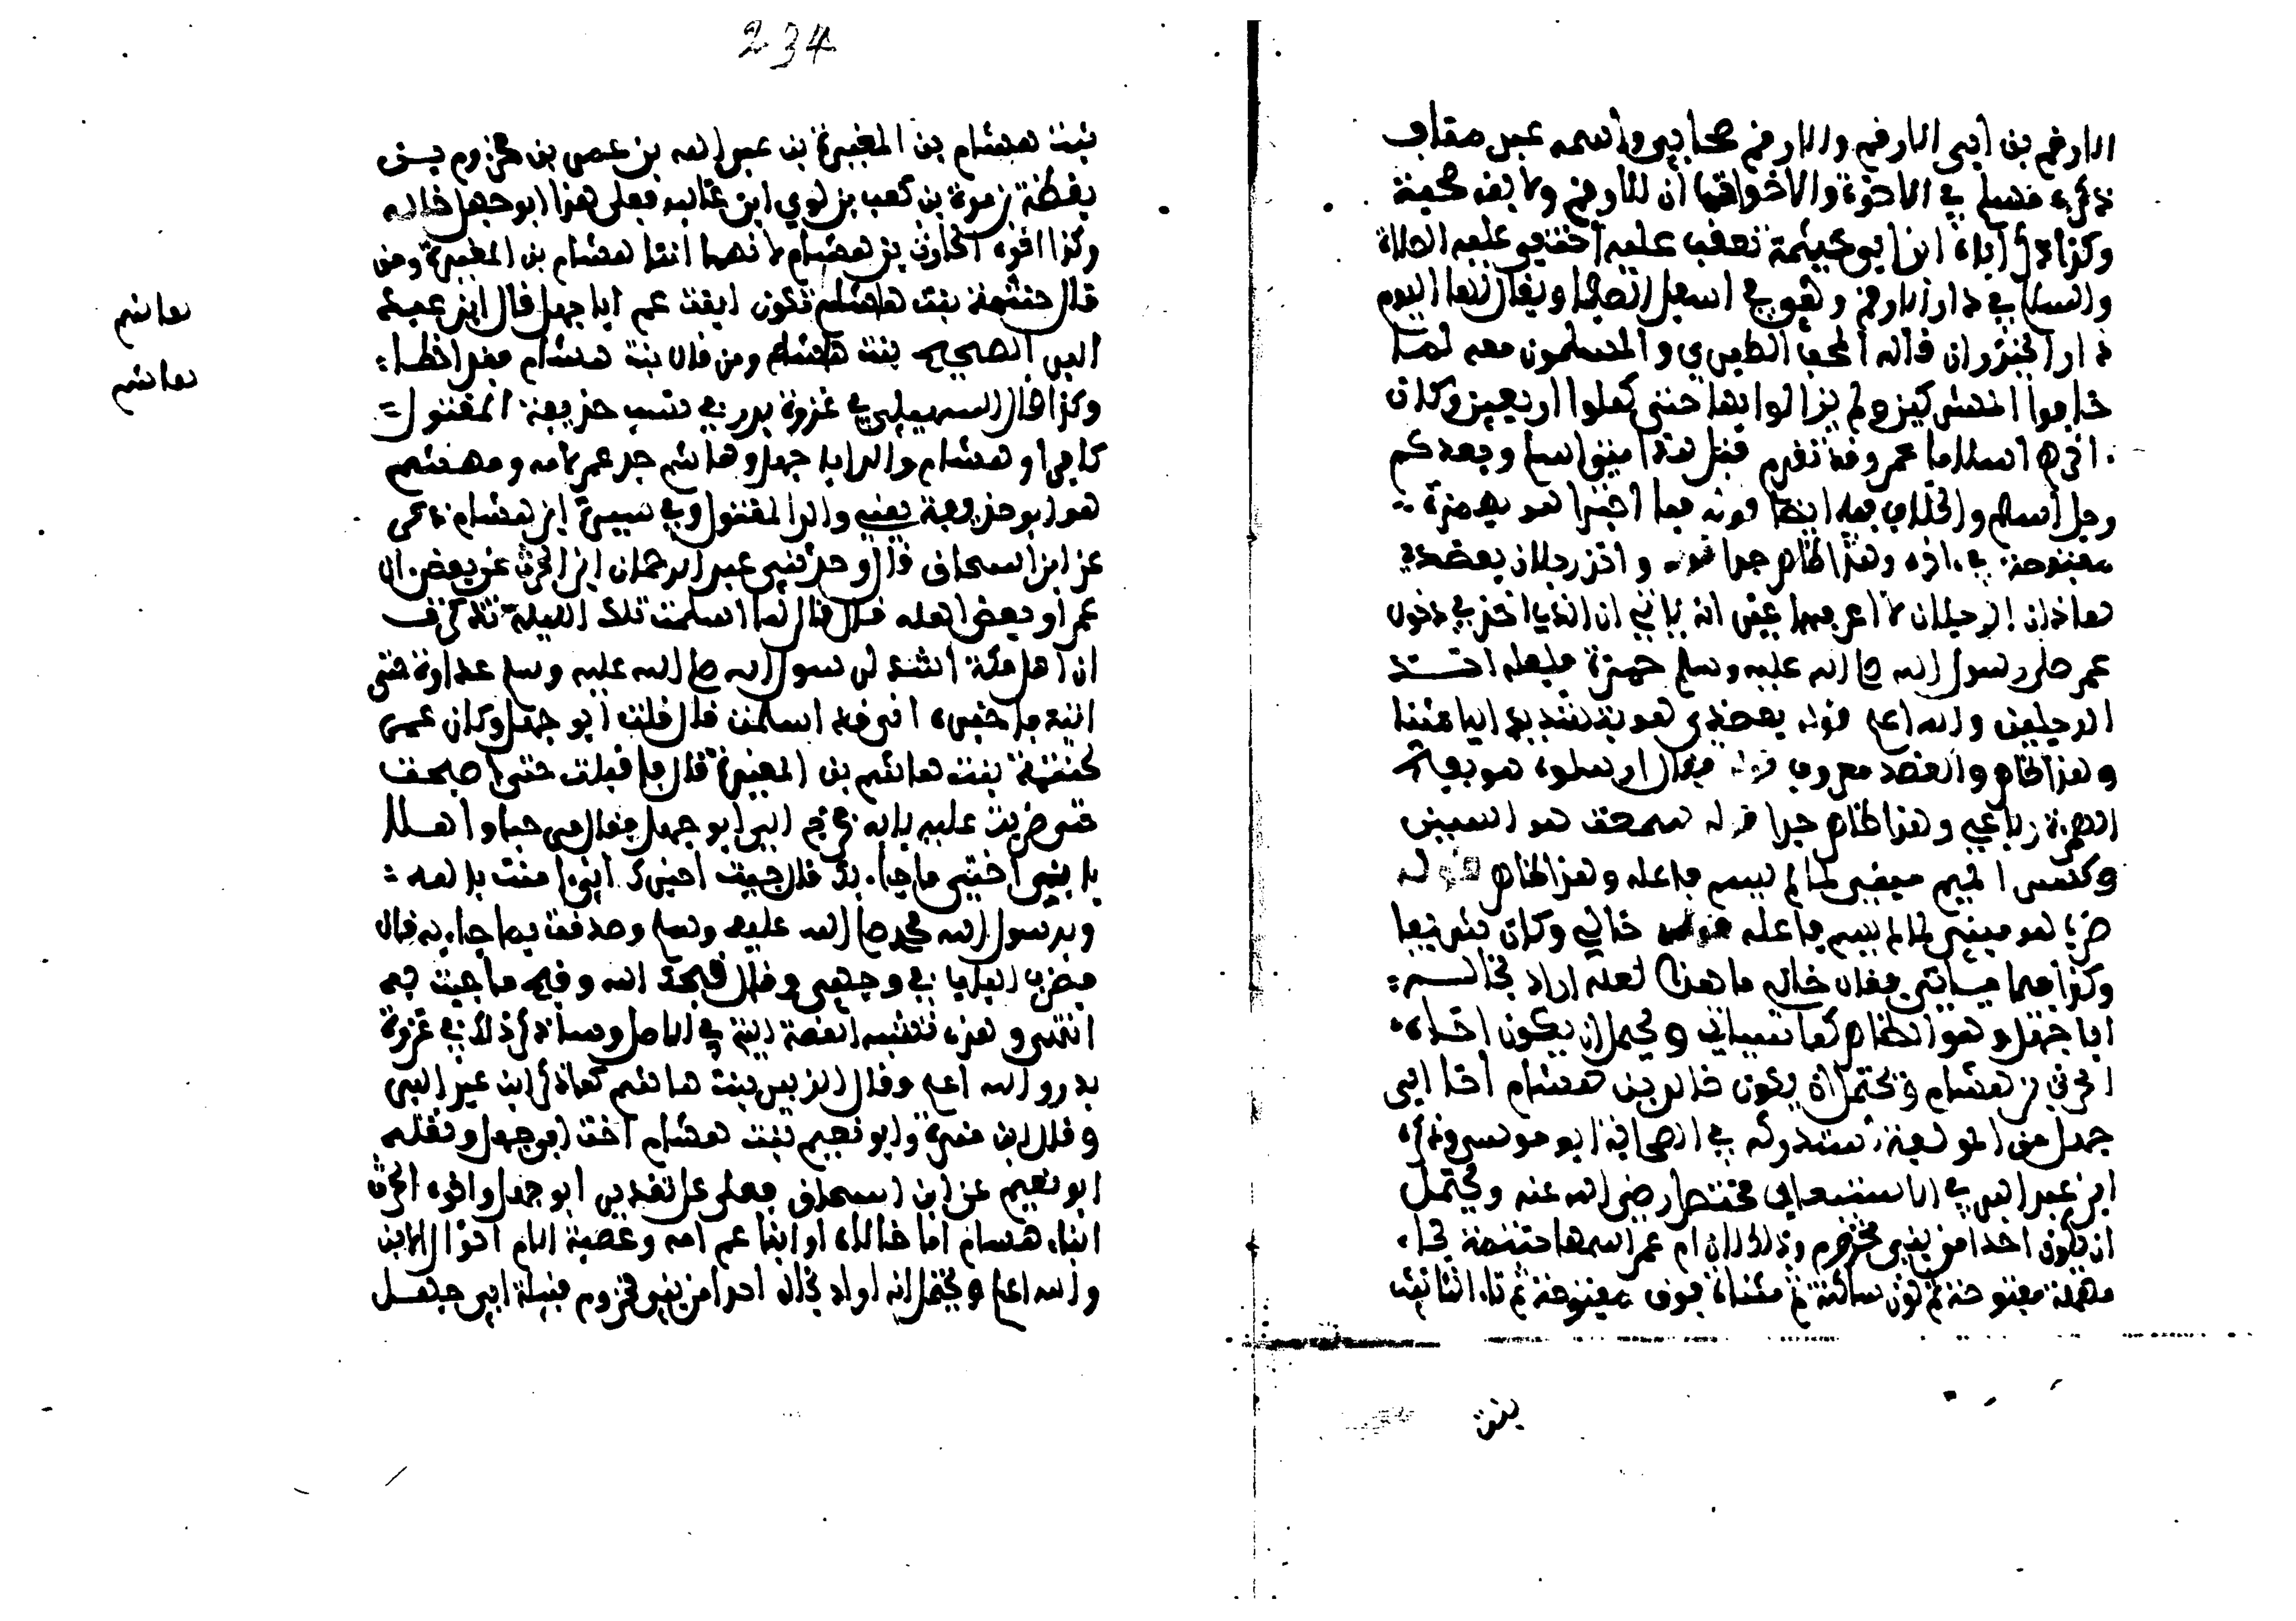 الارقم بن ابي الارقم والارقم صحابي واسمه عبد مناف
ذكره مسلم في الاخوة والاخوات ان للارقم ولابيه صحبة
وكذا ذكر اباه ابن ابي خيثمة تعقب عليه اختفى عليه الصلاة
والسلام في دار الارقم وهو في اسفل الصفا ويقال لها اليوم
دار الخيزران قاله المحب الطبري والمسلمون معه لما
خافوا المشركين ولم يزالوا بها حتى كملوا اربعين وكان
اخرهم اسلاما عمر وقد تقدم قبل هذا متى اسلم وبعد كم
رجل اسلم والخلاف فيه ايضا قوله فيما اجترا هو بهمزة
مفتوحة في اخره وهذا ظاهر جدا قوله واخذ رجلان بعضدي
هاذان الرجلان لا اعرفهما غير انه ياتي ان الذي اخذ في دخول
عمر على رسول الله صلى الله عليه وسلم حمزة فلعله احد
الرجلين والله اعلم قوله بعضدي هو بتشديد الياء مثنا
وهذا ظاهر والعضد معروف قوله فقال ارسلوه هو بفتح
الهمزة رباعي وهذا ظاهر جدا قوله سمعت هو السين
وكسر الميم مبني لما لم يسم فاعله وهذا ظاهر قوله
ضرب هو مبني لما لم يسم فاعله قوله خالي وكان شريفا
وكذا فيما سياتي فقال خالي ما هذا لعله اراد بخاله
ابا جهل وهو الظاهر كما سياتي ويحتمل ان يكون اخاه
الحرث بن هشام ويحتمل ان يكون خالد بن هشام اخا ابي
جهل من المولفة استدركه في الصحابة ابو موسى وذكره
ابن عبد البر في الاستيعاب مختصرا رضي الله عنه ويحتمل
ان يكون احدا من بني مخزوم وذلك لان ام عمر اسمها حنتمة بحاء
مهملة مفتوحة ثم نون ساكنة ثم مثناة فوق مفتوحة ثم تاء التانيث
بنت
234
بنت هشام بن المغيرة بن عبد الله بن عمر بن مخزوم بن
يقظة بن مرة بن كعب بن لوي ابن غالب فعلى هذا ابو جهل خاله
وكذا اخوه الحارث بن هشام لانهما ابنا هشام بن المغيرة ومن
قال حنتمة بنت هاشم تكون ابنت عم ابا جهل قال ابن عبد
البر الصحيح بنت هاشم ومن قال بنت هشام فقد اخطا
هاشم
هاشم
وكذا قال السهيلي في غزوة بدر في نسب حذيفة المقتول
كافرا وهشام والد ابا جهل وهاشم جد عمر لامه ومهشم
هو ابو حذيفة يعني والد المقتول وفي سيرة ابن هشام ذكر
عن ابن اسحاق قال وحدثني عبد الرحمان ابن الحرث عن بعض ال
عمر او بعض اهله قال قال لما اسلمت تلك الليلة تذكرت
اي اهل مكة اشد لرسول الله صلى الله عليه وسلم عداوة حتى
اتيه فاخبره اني قد اسلمت قال قلت ابو جهل وكان عمر
لحنتمة بنت هاشم بن المغيرة قال فاقبلت حتى اصبحت
حتى ضربت عليه بابه فخرج الي ابو جهل فقال مرحبا واهلا
يا بني اختي ما جاء بك قال جيت اخبرك اني امنت بالله
وبرسول الله محمد صلى الله عليه وسلم وصدقت بما جاء به قال
فضرب الباب في وجهي وقال قبحك الله وقبح ما جيت به
انتهى وهذه تشبه القصة التي في الاصل وساذكر ذلك في غزوة
بدر والله اعلم وقال الزبير بنت هاشم كما ذكر ابن عبد البر
وقال ابن منده وابو نعيم بنت هشام اخت ابو جهل ونقله
ابو نعيم عن ابن اسحاق فعلى كل تقدير ابو جهل واخوه الحرث
ابناء هشام اما خالاه او ابنا عم امه وعصبة الام اخوال الابن
والله اعلم ويحتمل انه اراد بخاله احدا من بني مخزوم قبيلة ابي جهل